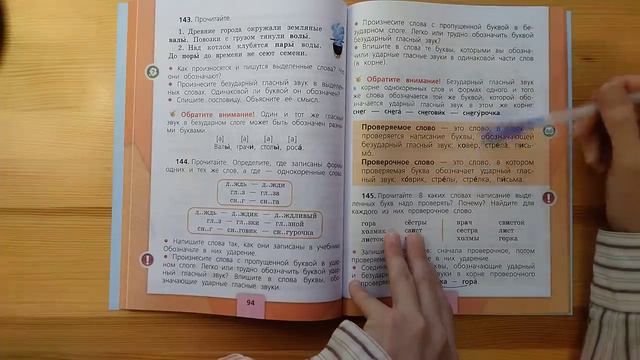 143. Прочитайте.
1. Древние города окружали земляные
валы. Повозки с грузом тянули волы.
2. Над котлом клубятся пары воды.
До поры до времени не сеют семени.
Как произносятся и пишутся выделенные слова? Что
они обозначают?
Произнесите безударный гласный звук в выделен-
ных словах. Одинаковой ли буквой он обозначен?
Спишите пословицу. Объясните её смысл.
Обратите внимание! Один и тот же гласный
звук в безударном слоге может быть обозначен разны-
ми буквами.
[а] [а] [а] [а]
Валы, грачи, столы, роса.
144. Прочитайте. Определите, где записаны формы
одних и тех же слов, а где — однокоренные слова.
д..ждь — д..жди
гл..з — гл..за
сн..г — сн..га
д..ждь — д..ждик — д..ждливый
гл..з — гл..зки — гл..зной
сн..г — сн..говик — сн..гурочка
Напишите слова так, как они записаны в учебнике.
Обозначьте в них ударение.
Произнесите слова с пропущенной буквой в удар-
ном слоге. Легко или трудно обозначить буквой удар-
ный гласный звук? Впишите в слова буквы, обо-
значающие ударные гласные звуки.
94
Произнесите слова с пропущенной буквой в бе-
зударном слоге. Легко или трудно обозначить буквой
безударный гласный звук?
Впишите в слова те буквы, которыми вы обозна-
чили ударные гласные звуки в одинаковой части слов
(в корне).
Обратите внимание! Безударный гласный
звук в корне однокоренных слов и формах одного и того
же слова обозначается той же буквой, которой обо-
значается ударный гласный звук в этом же корне:
снег — снега — снеговик — снегурочка
Проверяемое слово — это слово, в
проверяют написание буквы, обозначающей
безударный гласный звук: ковёр, стрела, пись-
мо.
Проверочное слово — это слово, в котором
проверяемая буква обозначает ударный глас-
ный звук: коврик, стрелы, стрелка, письма.
145. Прочитайте. В каких словах написание выде-
ленных букв надо проверять? Почему? Найдите для
каждого из них проверочное слово.
гора сёстры врач свисток
холмик свист сестра лист
листок холмы горка
сначала проверочное, потом
проверяемое в них ударение.
Соедини буквы, обозначающие ударный
и безударный звуки в корне проверочного
— гора.